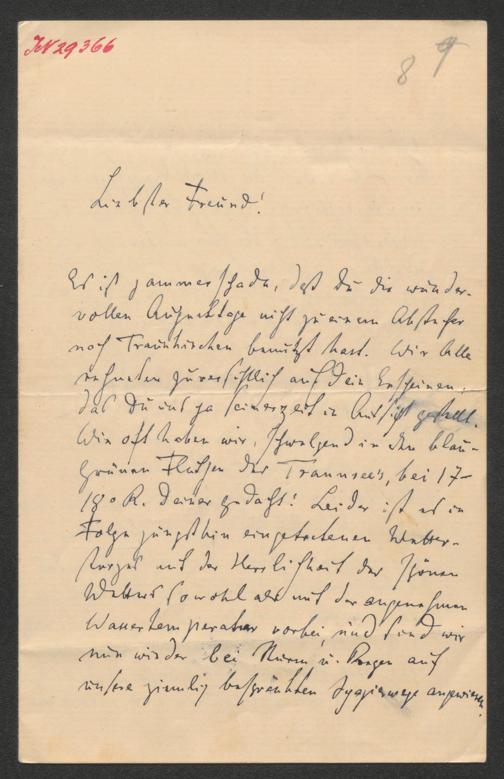 JN 29366
8 9
Liebster Freund!
Es ist jammerschade, daß Du die wunder-
vollen Augusttage nicht zu einem Abstecher
nach Traunkirchen benutzt hast. Wir Alle
rechneten zuversichtlich auf Dein Erscheinen,
das Du uns ja seinerzeit in Aussicht gestellt.
Wie oft haben wir, schwelgend in den blau-
grünen Fluthen des Traunsee's, bei 17-
18° R. Deiner gedacht! Leider ist es in
Folge jüngsthin eingetretenen Wetter-
sturzes mit der Herrlichkeit des schönen
Wetters sowohl als mit der angenehmen
Wassertemperatur vorbei, und sind wir
nun wieder bei Sturm u. Regen auf
unsere ziemlich beschränkten Spazierwege angewiesen.